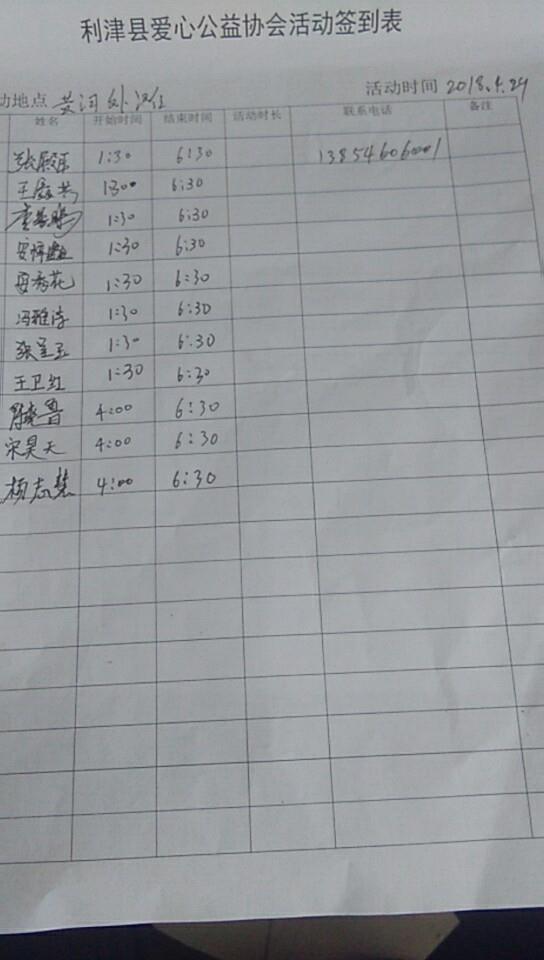 利津县爱心公益协会活动签到表
动地点 黄河外滩 活动时间 2018.4.29
姓名 开始时间 结束时间 活动时长 联系电话 备注
1:30 6:30 13854606001
1:30 6:30
1:30 6:30
1:30 6:30
毋秀花 1:30 6:30
冯雅洁 1:30 6:30
张呈玉 1:30 6:30
王卫红 1:30 6:30
陈晓鲁 4:00 6:30
宋昊天 4:00 6:30
杨志慧 4:00 6:30